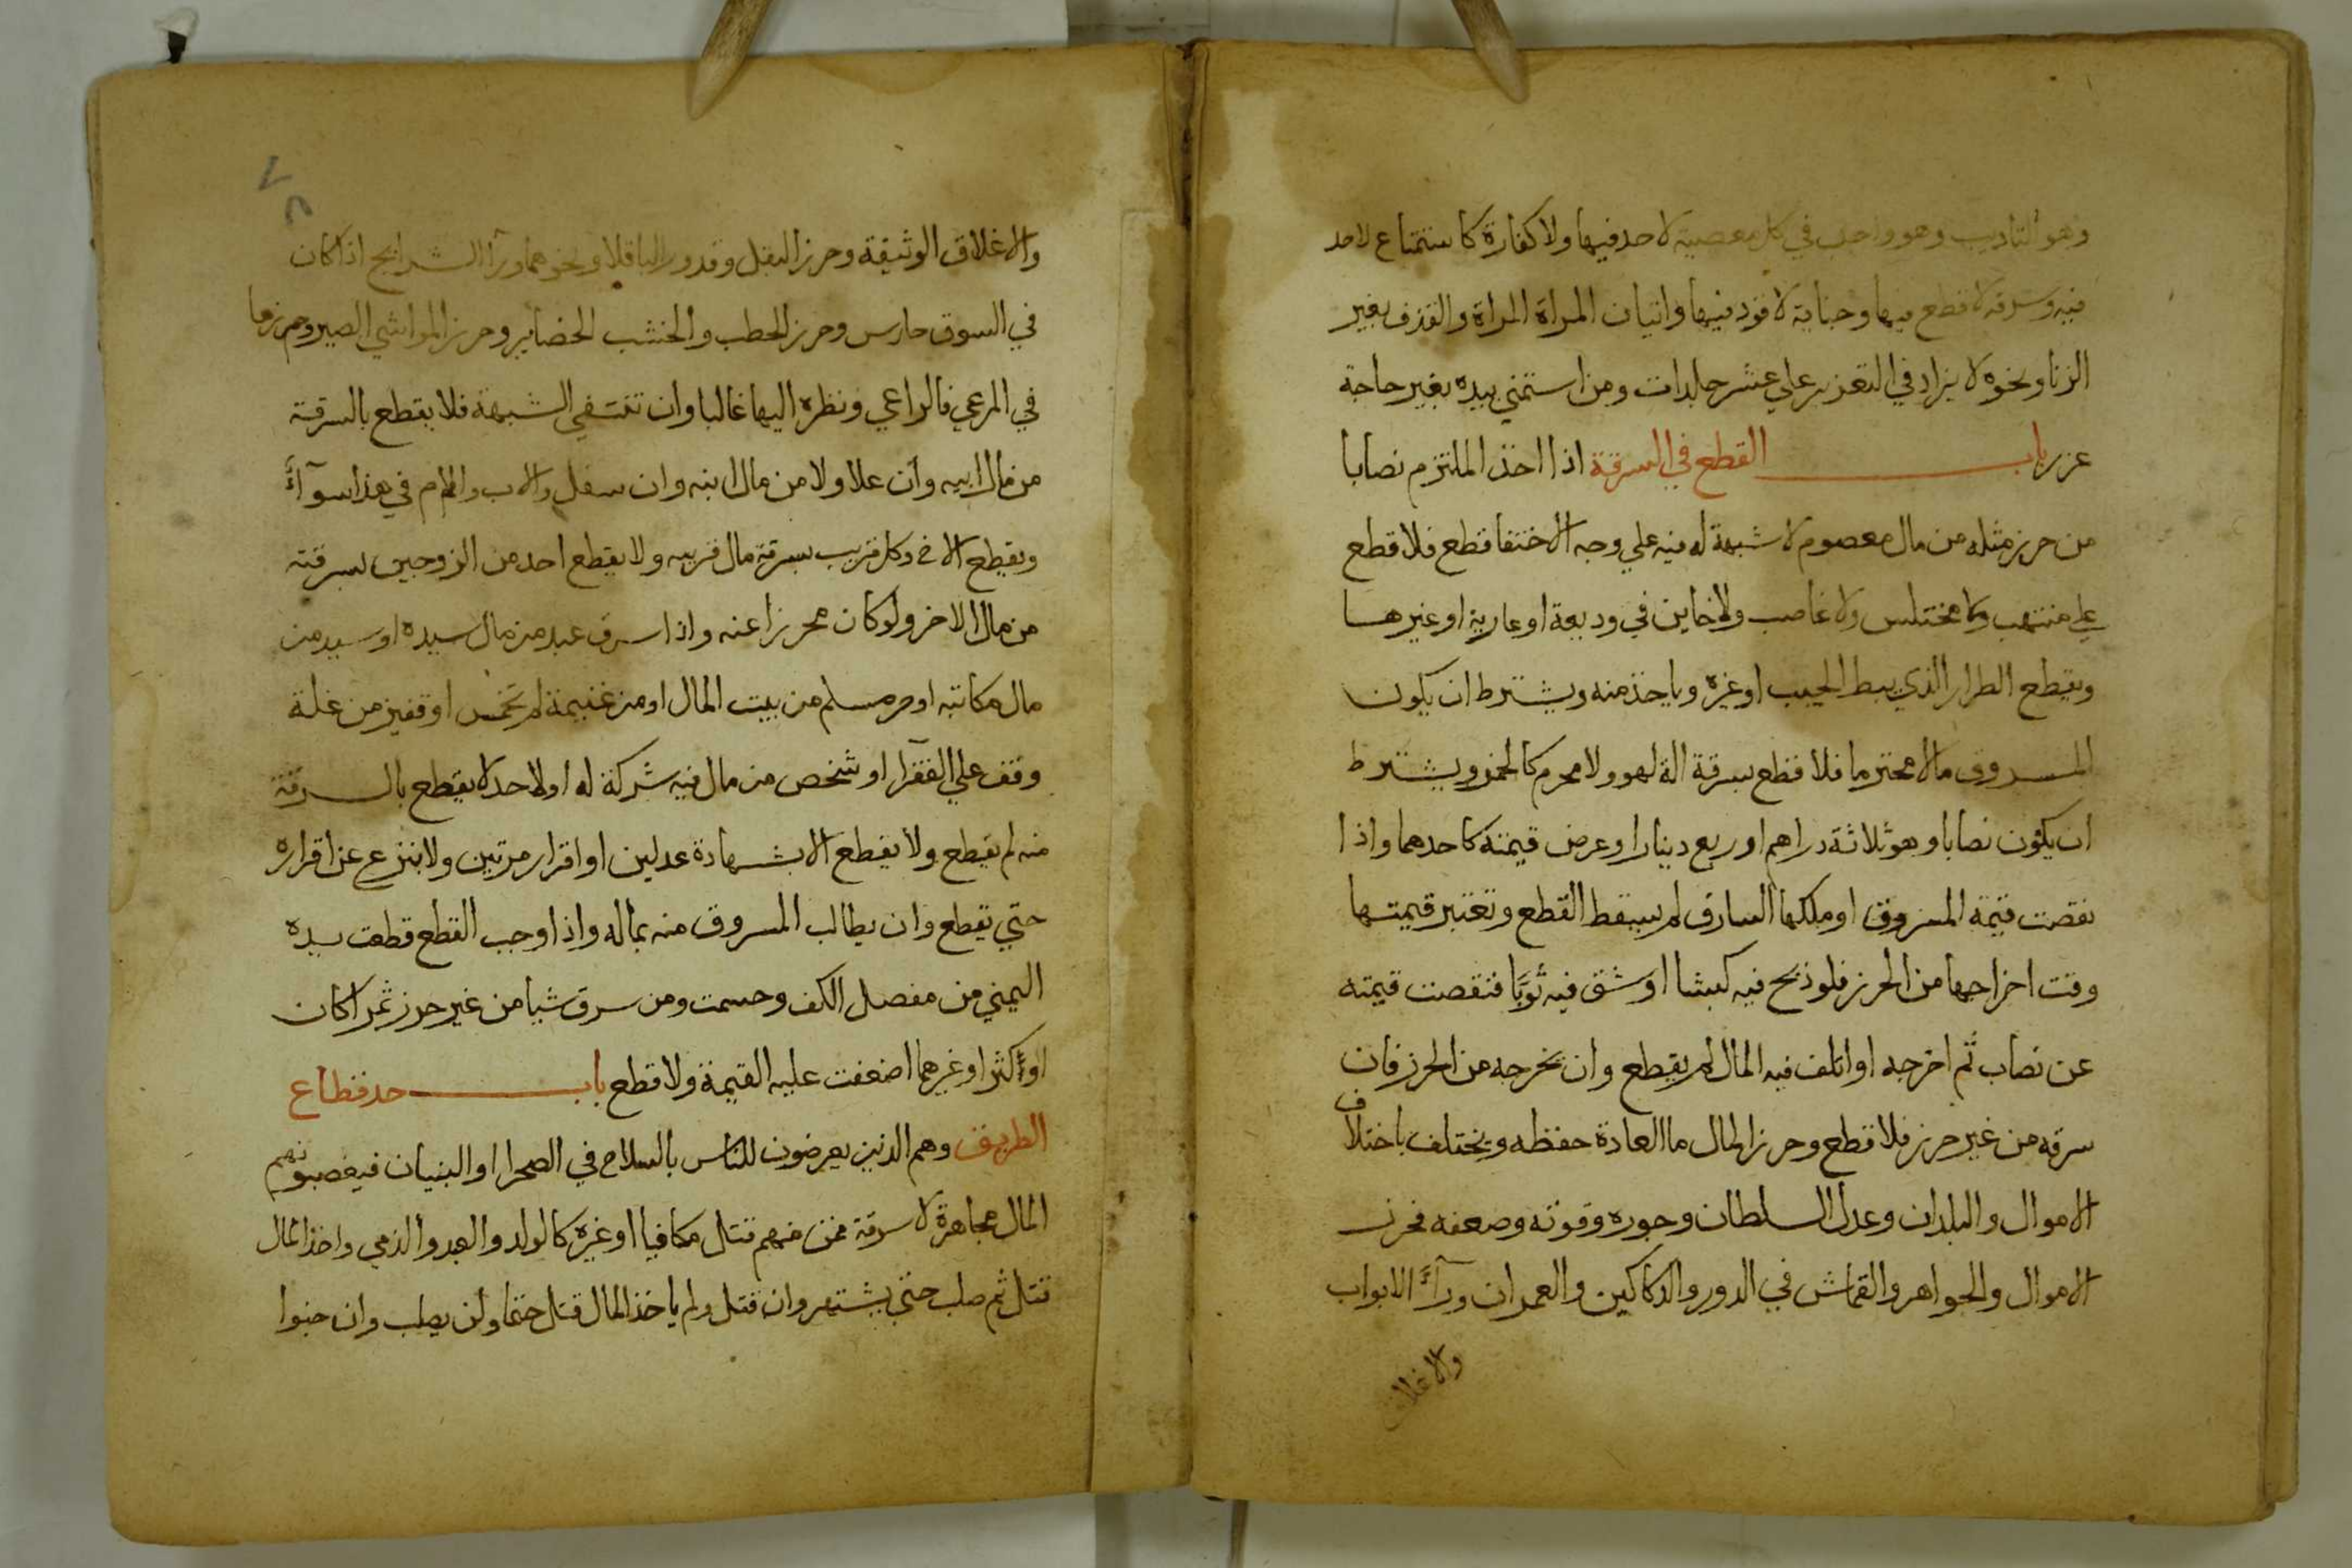 وهو التاديب وهو واجب في كل معصية لا حد فيها ولا كفارة كاستمتاع لا حد
فيه وسرقه لا قطع فيها وجناية لا قود فيها واتيان المراة المراة والقذف بغير
الزنا ونحوه لا يزاد في التعزير علي عشر جلدات ومن استمني بيده بغير حاجة
عزر باب القطع في السرقة اذا اخذ الملتزم نصابا
من حرز مثله من مال معصوم لا شبهة له فيه علي وجه الاختفا قطع فلا قطع
علي منتهب ولا مختلس ولا غاصب ولا خاين في وديعة او عارية او غيرها
ويقطع الطرار الذي يبط الجيب او غره وياخذ منه ويشترط ان يكون
المسروق مالا محترما فلا قطع بسرقة الة لهو ولا محرم كالخمر ويشترط
ان يكون نصابا وهو ثلاثة دراهم او ربع دينار او عرض قيمته كاحدهما واذا
نقصت قيمة المسروق او ملكها السارق لم يسقط القطع وتعتبر قيمتها
وقت اخراجها من الحرز فلو ذبح فيه كبشا او شق فيه ثوبا فنقصت قيمته
عن نصاب ثم اخرجه او اتلف فيه المال لم يقطع وان يخرجه من الحرز فان
سرقه من غير حرز فلا قطع وحرز المال ما العادة حفظه ويختلف باختلاف
الاموال والبلدان وعدل السلطان وجوره وقوته وضعفه فحرز
الاموال والجواهر والقماش في الدور والدكاكين والعمران ورآء الابواب
والاغلاق
٧٨
والاغلاق الوثيقة وحرز البقل وقدور الباقلا ونحوهما ورآ الشرايج اذا كان
في السوق حارس وحرز الحطب والخشب الحضاير وحرز المواشي الصير وحرزها
في المرعي فالراعي ونظره اليها غالبا وان تنتفي الشبهة فلا يقطع بالسرقة
من مال ابيه وان علا ولا من مال ابنه وان سفل والاب والام في هذا سوآء
ويقطع الاخ وكل قريب بسرقة مال قريبه ولا يقطع احد من الزوجين بسرقته
من مال الاخر ولو كان محرزا عنه واذا سرق عبد من مال سيده او سيد من
مال مكاتبه او حر مسلم من بيت المال او من غنيمة لم تخمس او فقير من غلة
وقف علي الفقرآ او شخص من مال فيه شركة له او لاحد لا يقطع بالسرقة
منه لم يقطع ولا يقطع الا بشهادة عدلين او اقرار مرتين ولا ينزع عن اقراره
حتي يقطع وان يطالب المسروق منه بماله واذا وجب القطع قطعت يده
اليمني من مفصل الكف وحسمت ومن سرق شيا من غير حرز ثمرا كان
او كثرا او غيرهما اضعفت عليه القيمة ولا قطع باب حد قطاع
الطريق وهم الذين يعرضون للناس بالسلاح في الصحرا او البنيان فيغصبونهم
المال مجاهرة لا سرقة فمن منهم قتل مكافيا او غيره كالولد والعبد والذمي واخذ المال
قتل ثم صلب حتي يشتهر وان قتل ولم ياخذ المال قتل حتما ولن يصلب وان جنوا